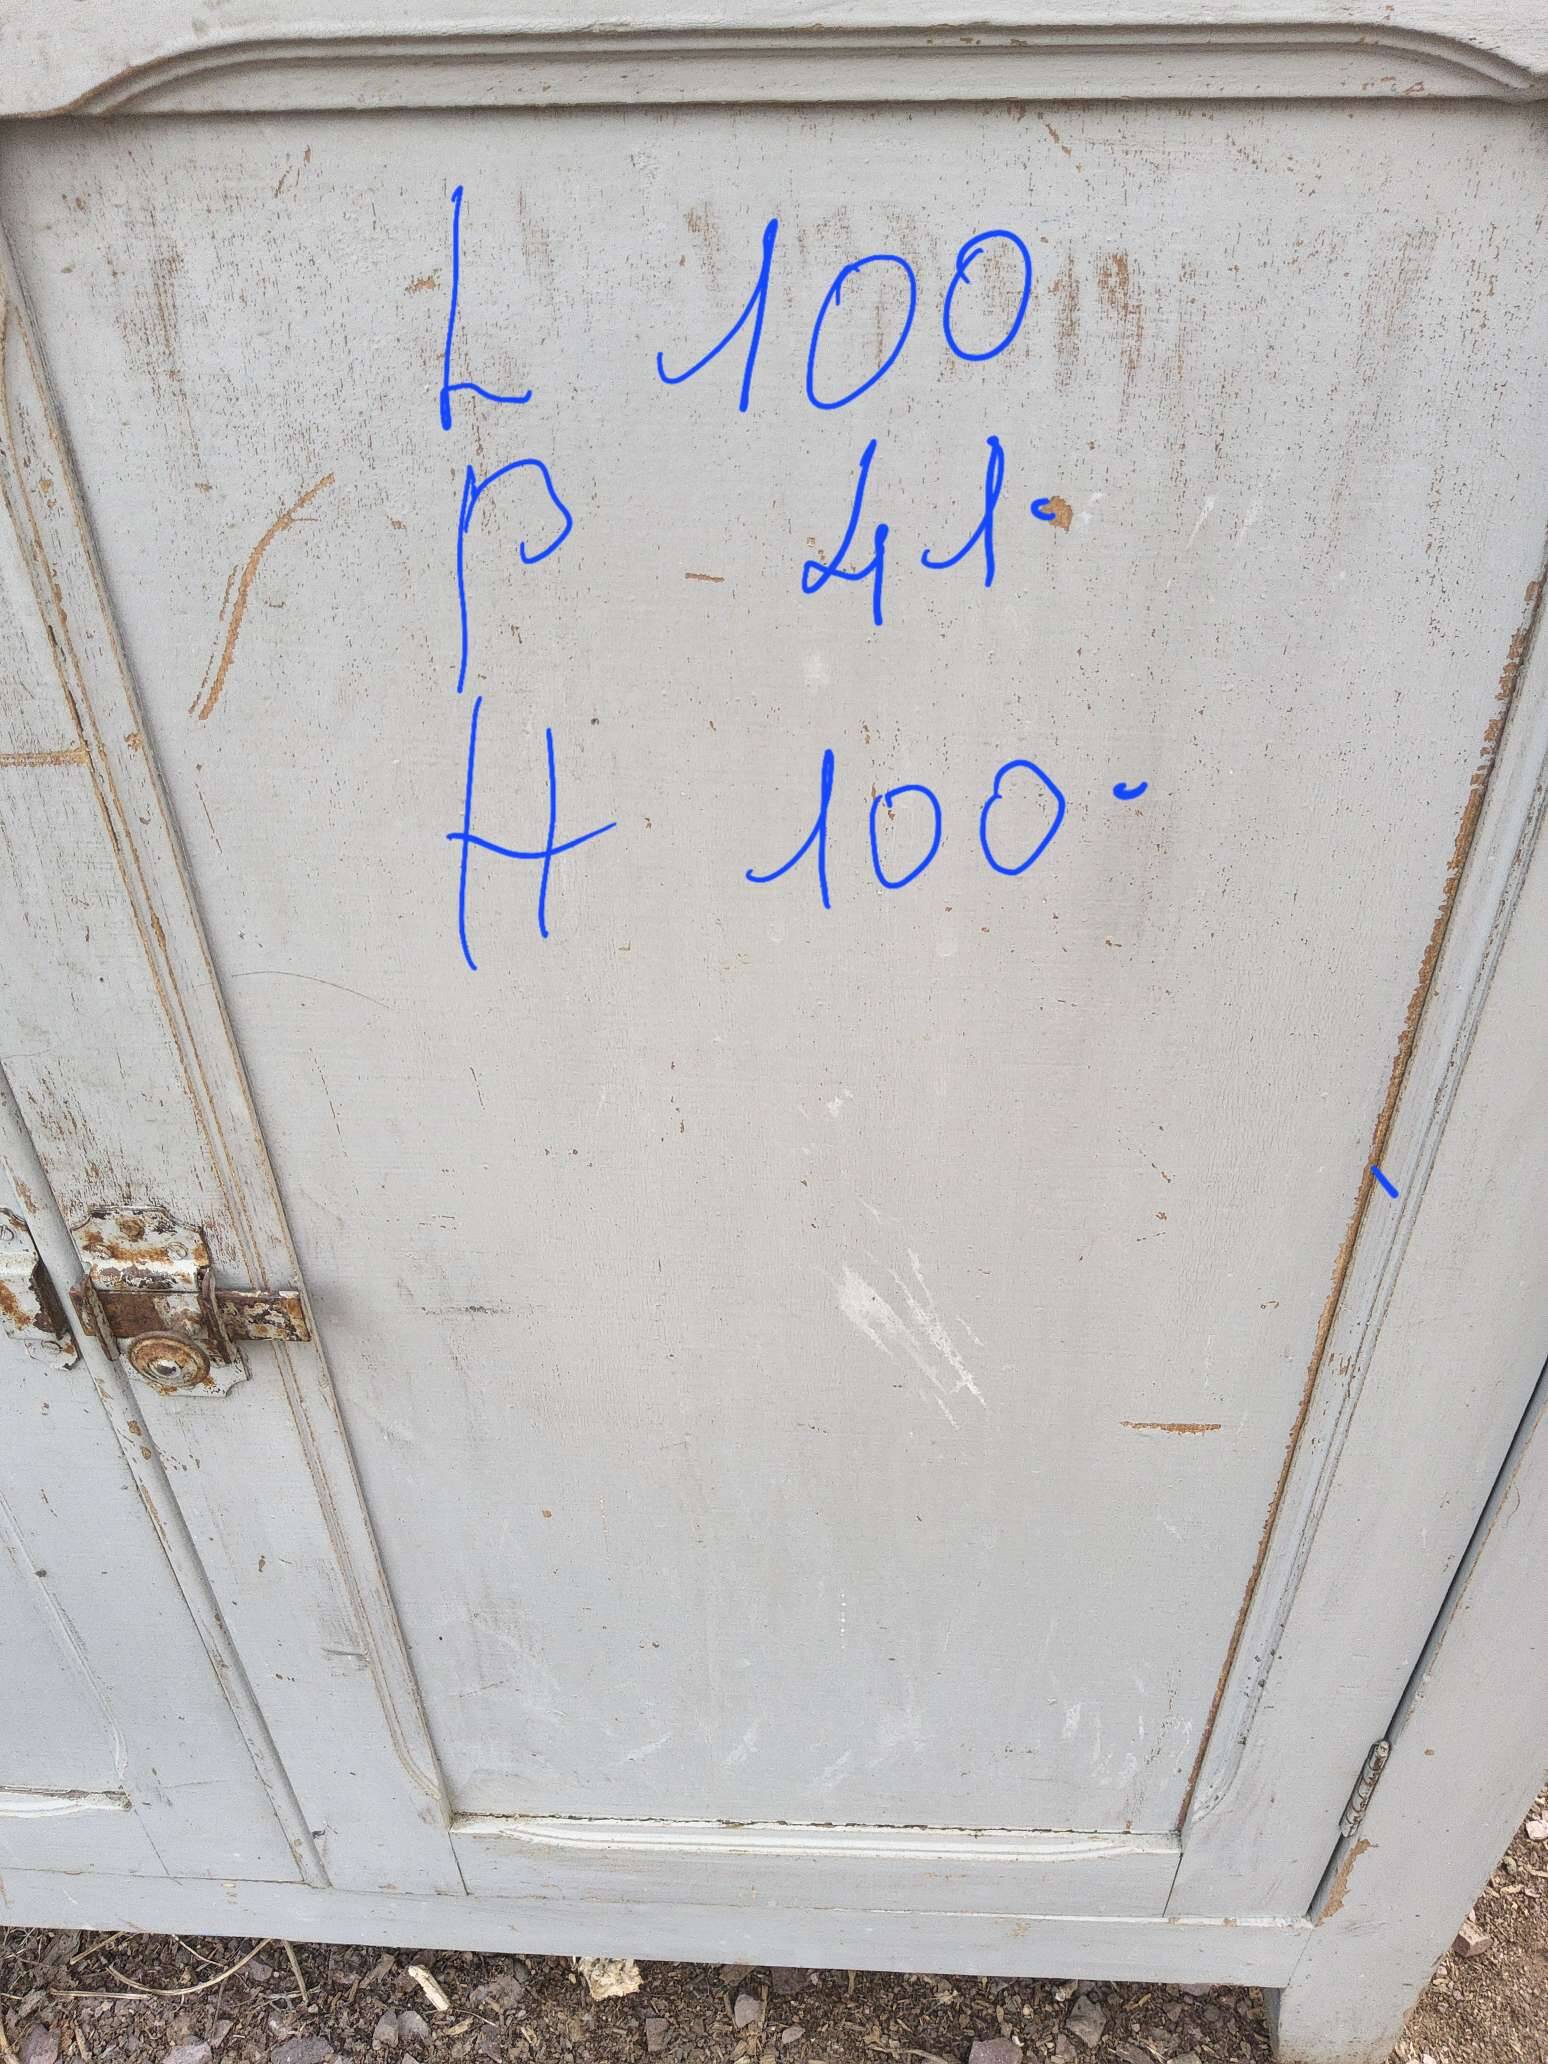 L 100
P 41
H 100